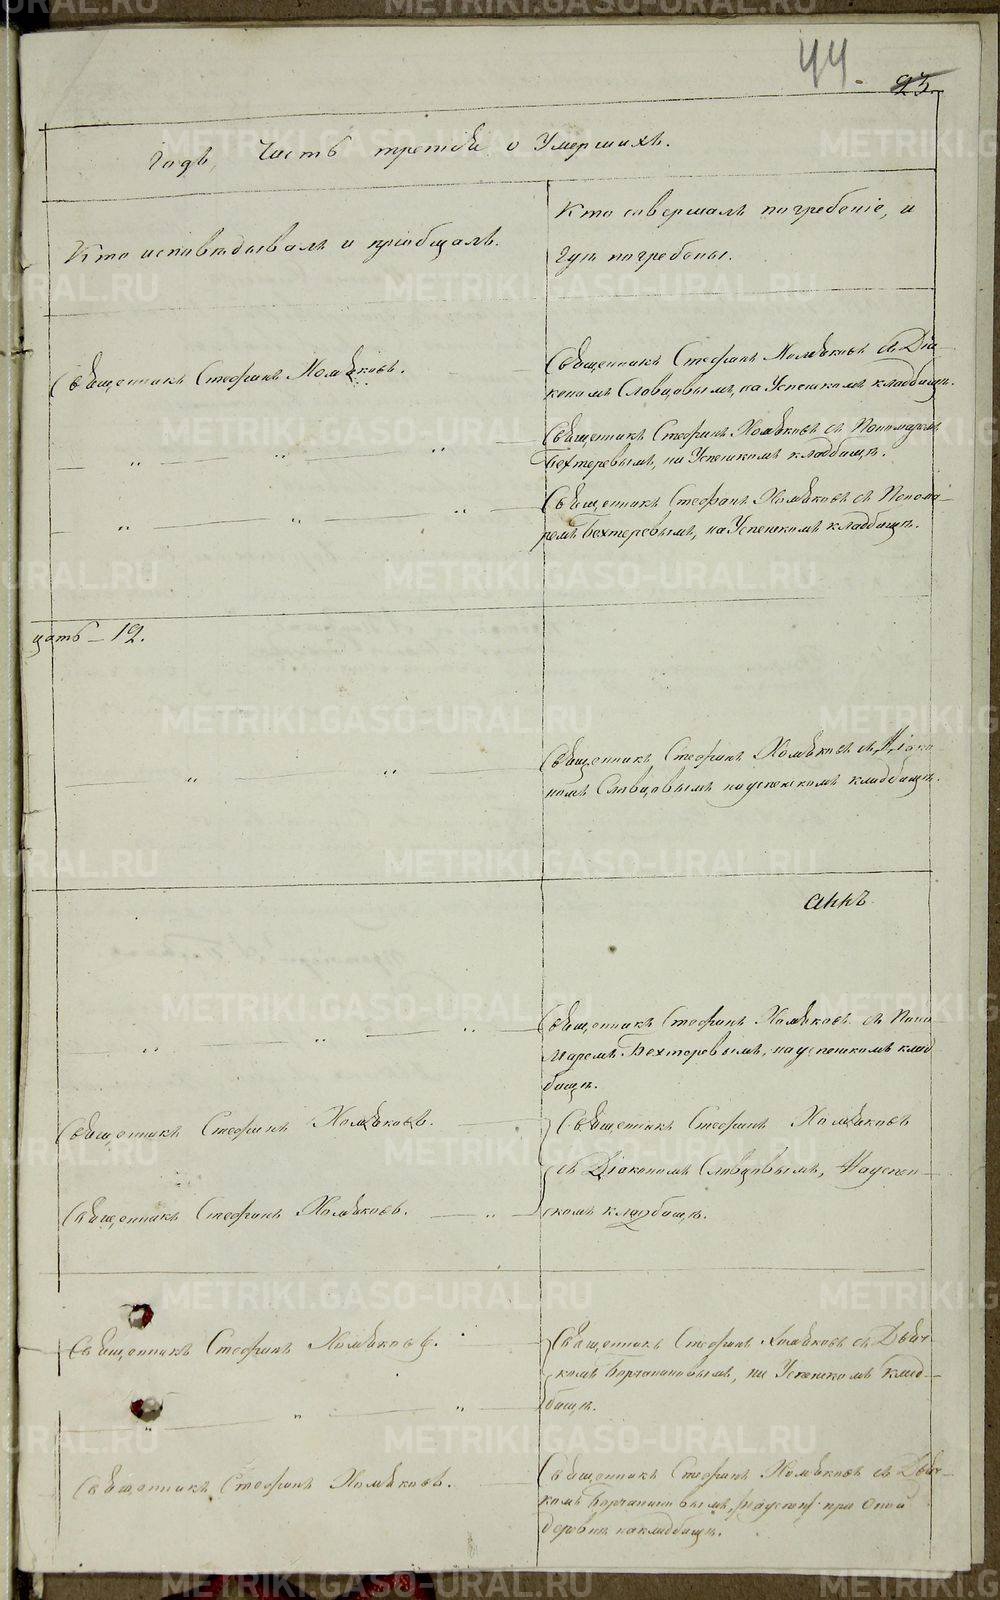 44.
23.
годъ, Часть третія о Умершихъ.
Кто исповѣдывалъ и пріобщалъ.
Кто совершалъ погребеніе, и
гдѣ погребены.
Священникъ Стефанъ Хомяковъ.
Священникъ Стефанъ Хомяковъ съ Діа
кономъ Словцовымъ, на Успенскомъ кладбищѣ.
Священникъ Стефанъ Хомяковъ съ Пономаремъ
Бехтеревымъ, на Успенскомъ кладбищѣ.
Священникъ Стефанъ Хомяковъ съ Понома-
ремъ Бехтеревымъ, на Успенскомъ кладбищѣ.
цать – 12.
Священникъ Стефанъ Хомяковъ съ Діако
номъ Словцовымъ на успенскомъ кладбищѣ.
Священникъ Стефанъ Хомяковъ съ Поно
маремъ Бехтеревымъ, на успенскомъ клад
бищѣ.
Священникъ Стефанъ Хомяковъ.
Священникъ Стефанъ Хомяковъ
съ Діакономъ Словцовымъ, На успен-
скомъ кладбищѣ.
Священникъ Стефанъ Хомяковъ.
Священникъ Стефанъ Хомяковъ.
Священникъ Стефанъ Хомяковъ съ Дьяч-
комъ на Успенскомъ Клад-
бищѣ.
Священникъ Стефанъ Хомяковъ.
Священникъ Стефанъ Хомяковъ съ Дьяч-
комъ при оной
деревнѣ на кладбищѣ.
METRIKI.GASO-URAL.RU